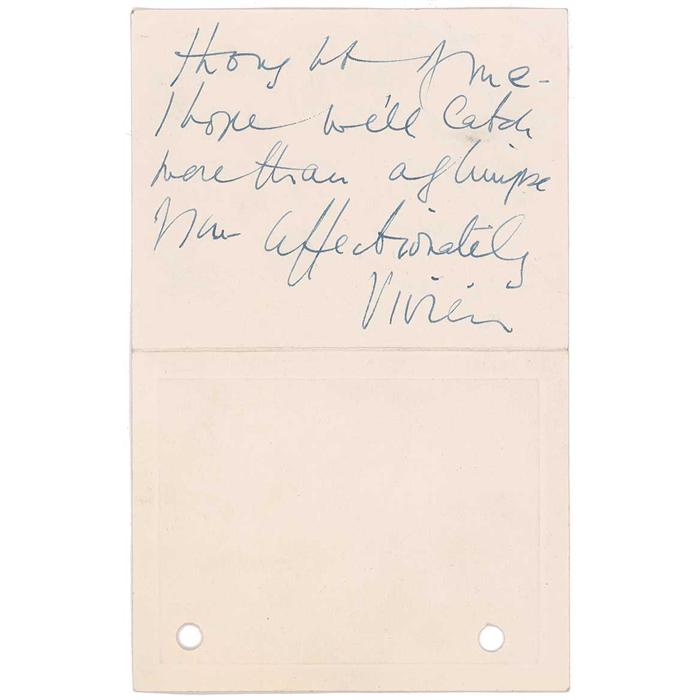 thought of me -
I hope we'll catch
more than a glimpse
affectionately
Vivien